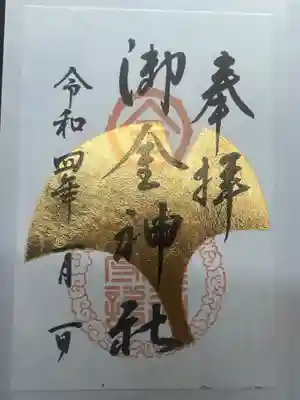 奉拝
御金神社
令和四年一月一日